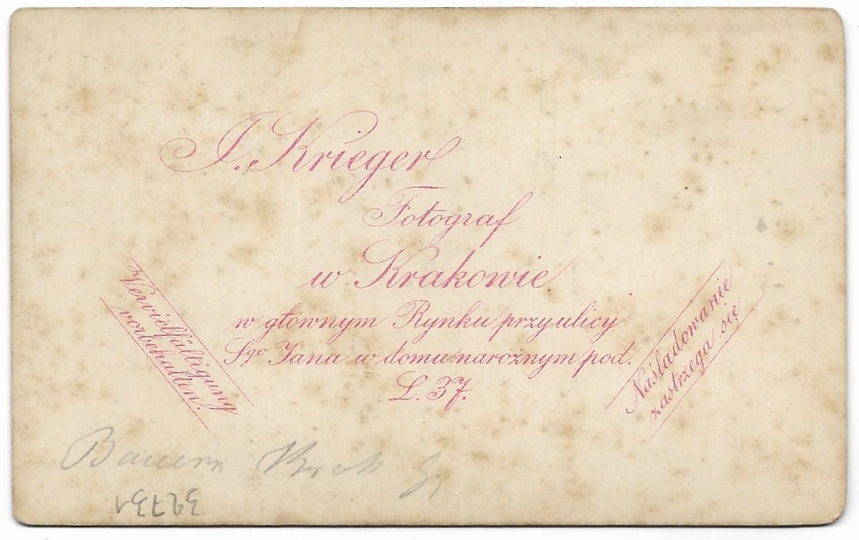 J. Krieger
Fotograf
w Krakowie
w głównym Rynku przy ulicy
Sgo Jana w domu narożnym pod.
L. 37.
Vervielfältigung
vorbehalten.
Naśladowanie
zastrzega się
Bauern